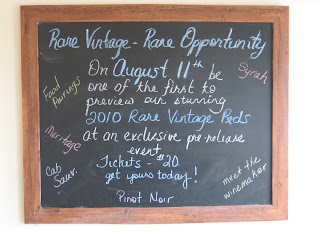 Rare Vintage - Rare Opportunity
On August 11th be
one of the first to
preview our stunning
2010 Rare Vintage Reds
at an exclusive pre-release
event
Tickets - $20
get yours today!
Pinot Noir
Food Pairings
Meritage
Cab Sauv.
Syrah
meet the winemaker